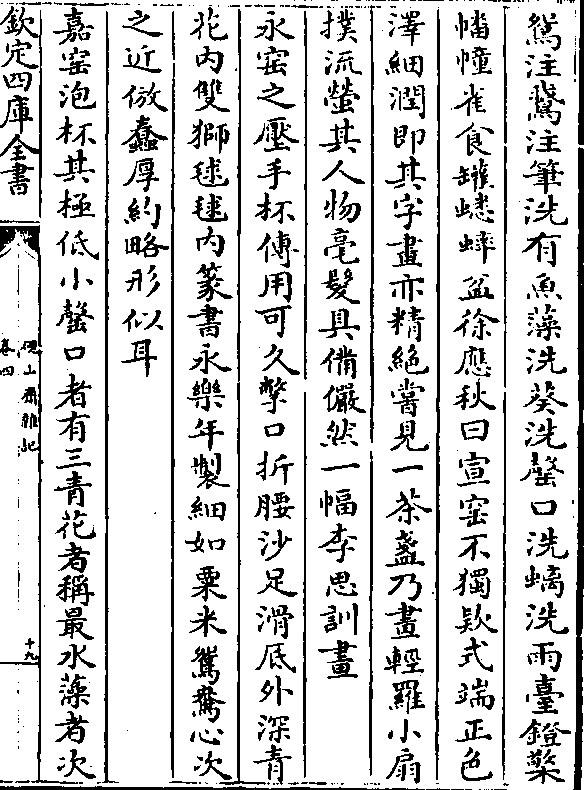 鴛注鵞注筆洗有魚藻洗葵洗罄口洗螭洗雨臺鐙檠
幡幢雀食罐蟋蟀盆徐應秋曰宣窑不獨欵式端正色
澤細潤即其字畫亦精絶嘗見一茶盞乃畫輕羅小扇
撲流螢其人物毫髮具備儼然一幅李思訓畫
永窑之壓手杯傅用可久擎口折腰沙足滑底外深青
花内雙獅毬毬内篆書永樂年製細如粟米鴛鴦心次
之近倣蠢厚約略形似耳
嘉窑泡杯其極低小罄口者有三青花者稱最水藻者次
欽定四庫全書
硯山齋雜記
卷四
十九